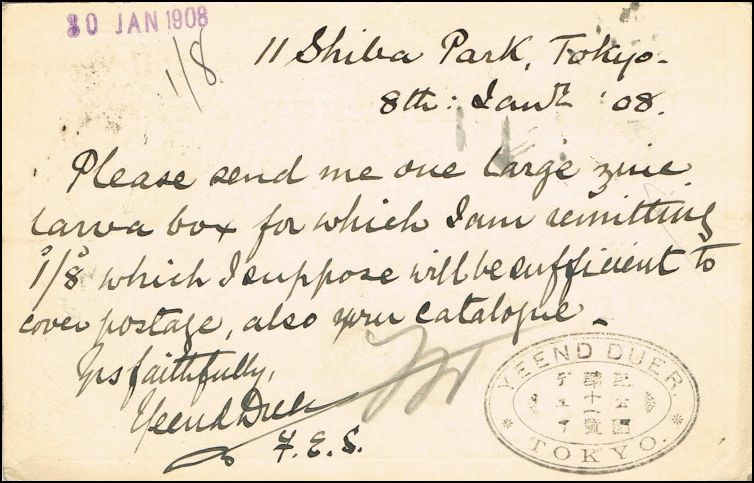 30 JAN 1908
1/8.
11 Shiba Park, Tokyo.
8th: Jan. '08.
Please send me one large zinc
larva box for which I am remitting
1/8 which I suppose will be sufficient to
cover postage, also your catalogue.
Yrs faithfully,
Yeend Duer
F.E.S.
YEEND DUER.
TOKYO.